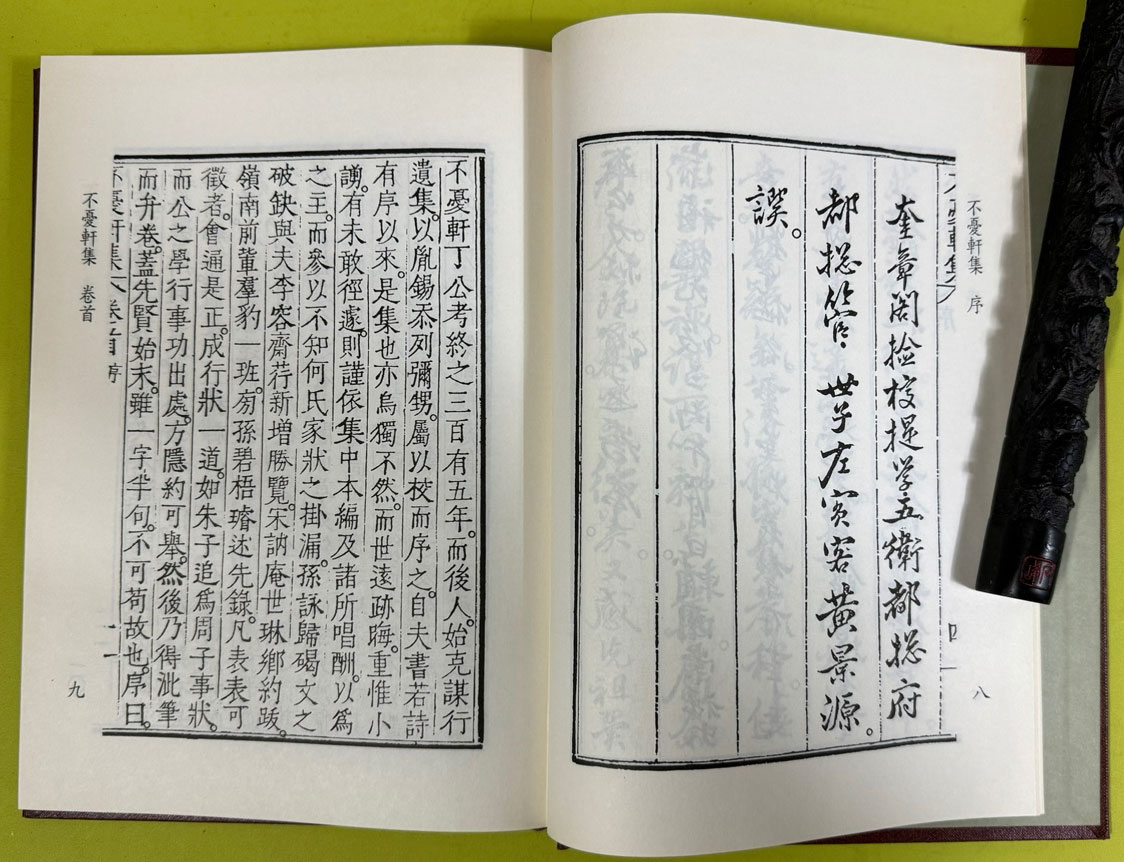 不憂軒集 序
八
奎章閣檢校提學五衛都摠府
都摠管世子左賓客黃景源
譔。
不憂軒丁公考終之三百有五年。而後人。始克謀行
遺集。以胤錫忝列彌甥。屬以校而序之。自夫書若詩
有序以來。是集也亦烏獨不然。而世遠跡晦。重惟小
謭。有未敢徑遽。則謹依集中本編及諸所唱酬。以爲
之主。而參以不知何氏家狀之掛漏。孫詠歸碣文之
破缺與夫李容齋荇新增勝覽。宋訥庵世琳鄕約跋。
嶺南前輩羣豹一班。旁孫碧梧璿述先錄。凡表表可
徵者。會通是正。成行狀一道。如朱子追爲周子事狀。
而公之學行事功出處。方隱約可擧。然後乃得泚筆
而弁卷。蓋先賢始末。雖一字半句。不可苟故也。序曰。
不憂軒集 卷之首 序
不憂軒集 卷首
九